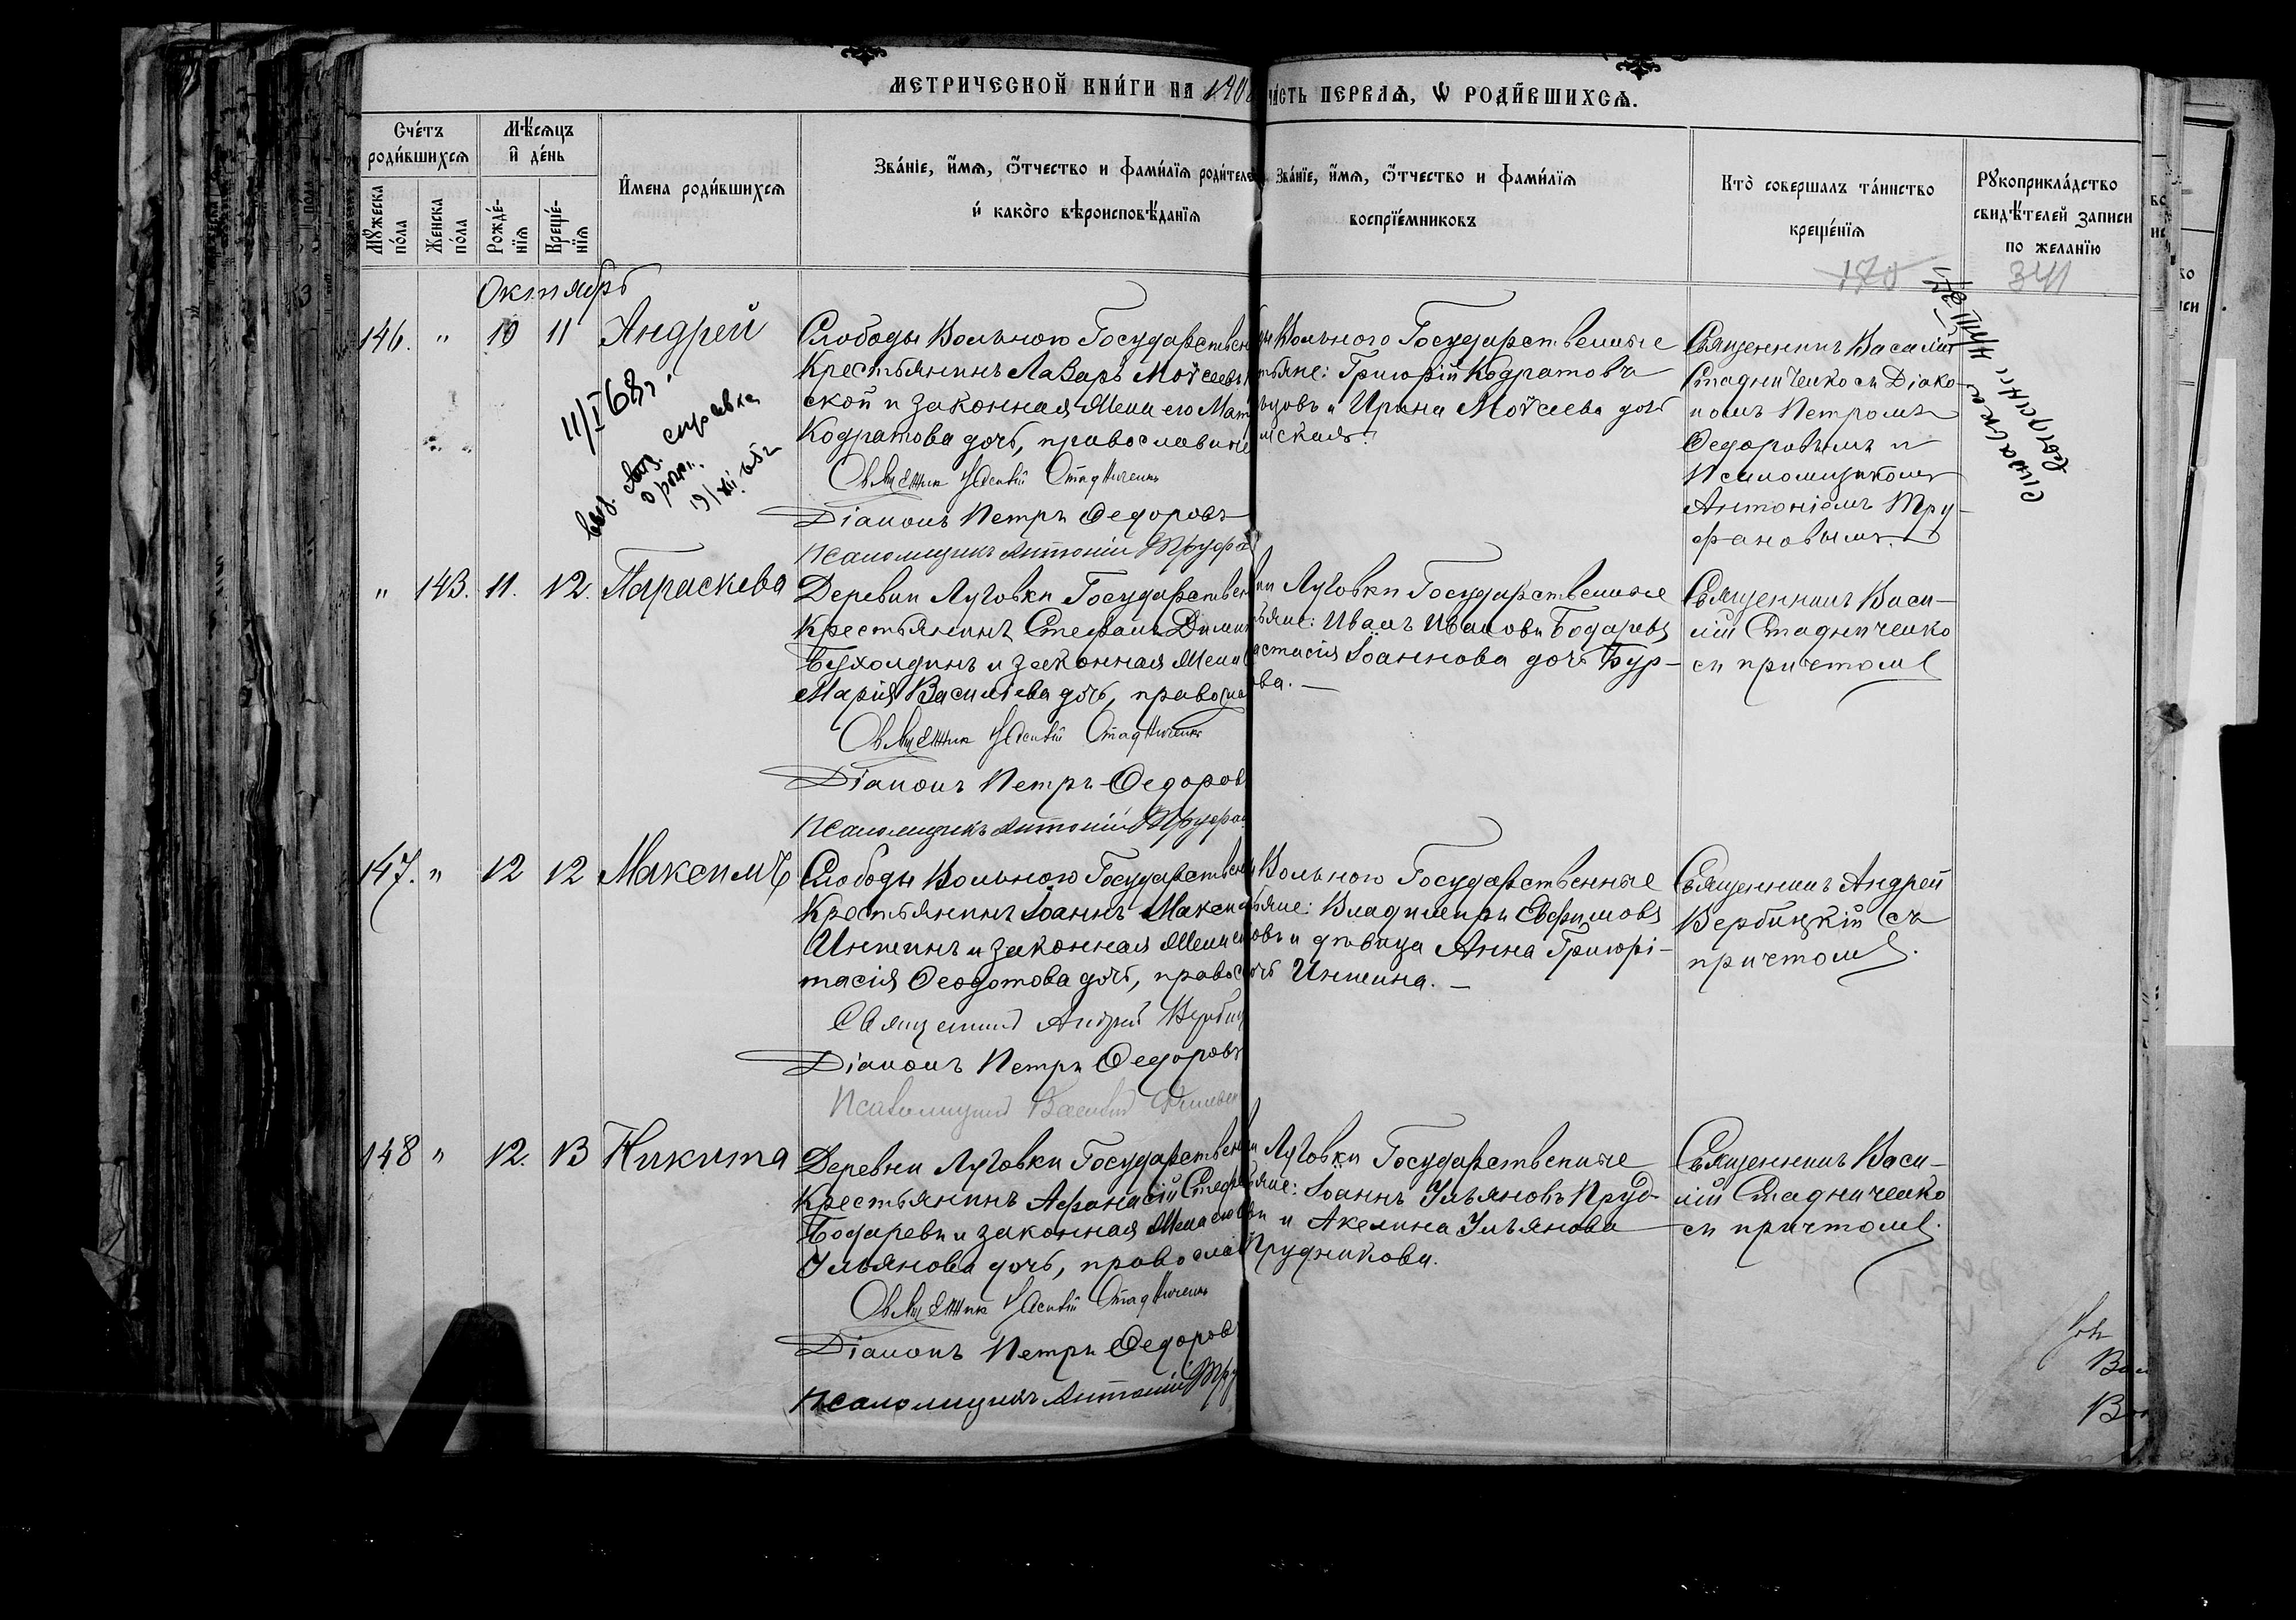 МЕТРИЧЕСКОЙ КНИ́ГИ НА 190
ЧА́СТЬ ПЕРВАѦ, Ѡ РОДИ́ВШИХСѦ.
Сче́тъ роди́вшихсѧ
Мѣ́сѧцъ и҆ де́нь
Мꙋ́жеска по́ла
Же́нска по́ла
Рожде́-нїѧ
Креще́-нїѧ
И҆мена роди́вшихсѧ
Зва́нїе, и҆́мѧ, ѻ҆́тчество и фами́лїѧ роди́теле
и҆ како́гѡ вѣроисповѣ́данїѧ
Зва́нїе, и҆́мѧ, ѻ҆́тчество и фами́лїѧ
воспрїе́мниковъ
Кто̀ совершалъ та́инство
креще́нїѧ
Рꙋкоприкла́дство
свидѣ́телей записи
по жела́нїю
170
341
Октябрь
146. " 10 11 Андрей
Слободы Вольного Государствен
Крестьянинъ Лазарь Моѵсеевъ
ской и законная жена его Мат
Кодратова дочь, православные
Священник Василій Стадниченко
Діаконъ Петръ Ѳедоровъ
Псаломщикъ Антоній Труфа
Вольного Государственные
тьяне: Григорій Кодратовъ
и Ирина Моѵсеева дочь
Священникъ Василій
Стадниченко съ Діако-
номъ Петромъ
Ѳедоровымъ и
Псаломщикомъ
Антоніемъ Тру-
фановымъ.
11/I 68г.
справка
о рожд.
" 143. 11. 12. Параскева
Деревни Луговки Государствен
Крестьянинъ Стефанъ
и законная жена
Марія Василіева дочь, правосла
Священник Василій Стадниченко
Діаконъ Петръ Ѳедоров
Псаломщикъ Антоній Труфа
Луговки Государственные
тьяне: Иванъ Ивановъ Бодаревъ
астасія Іоаннова дочь Бур-
ова.
Священникъ Васи-
лій Стадниченко
съ причтомъ
147. " 12 12 Максимъ
Слободы Вольного Государствен
Крестьянинъ Іоаннъ Макси
Иншинъ и законная жена
тасія Ѳеодотова дочь, правос
Священникъ Андрей Верби
Діаконъ Петръ Ѳедоровъ
Псаломщикъ Василій
Вольного Государственные
тьяне: Владимиръ Евфимовъ
и дѣвица Анна Григорі-
очь Иншина.
Священникъ Андрей
Вербицкій съ
причтомъ.
148 " 12. 13 Никита
Деревни Луговки Государствен
Крестьянинъ Афанасій Стеф
Бодаревъ и законная жена его
Ульянова дочь, правосла
Священник Василій Стадниченко
Діаконъ Петръ Ѳедоров
Псаломщикъ Антоній Тру
Луговки Государственные
тьяне: Іоаннъ Ульяновъ Пруд-
и Акелина Ульянова
Прудникова.
Священникъ Васи-
лій Стадниченко
съ причтомъ.